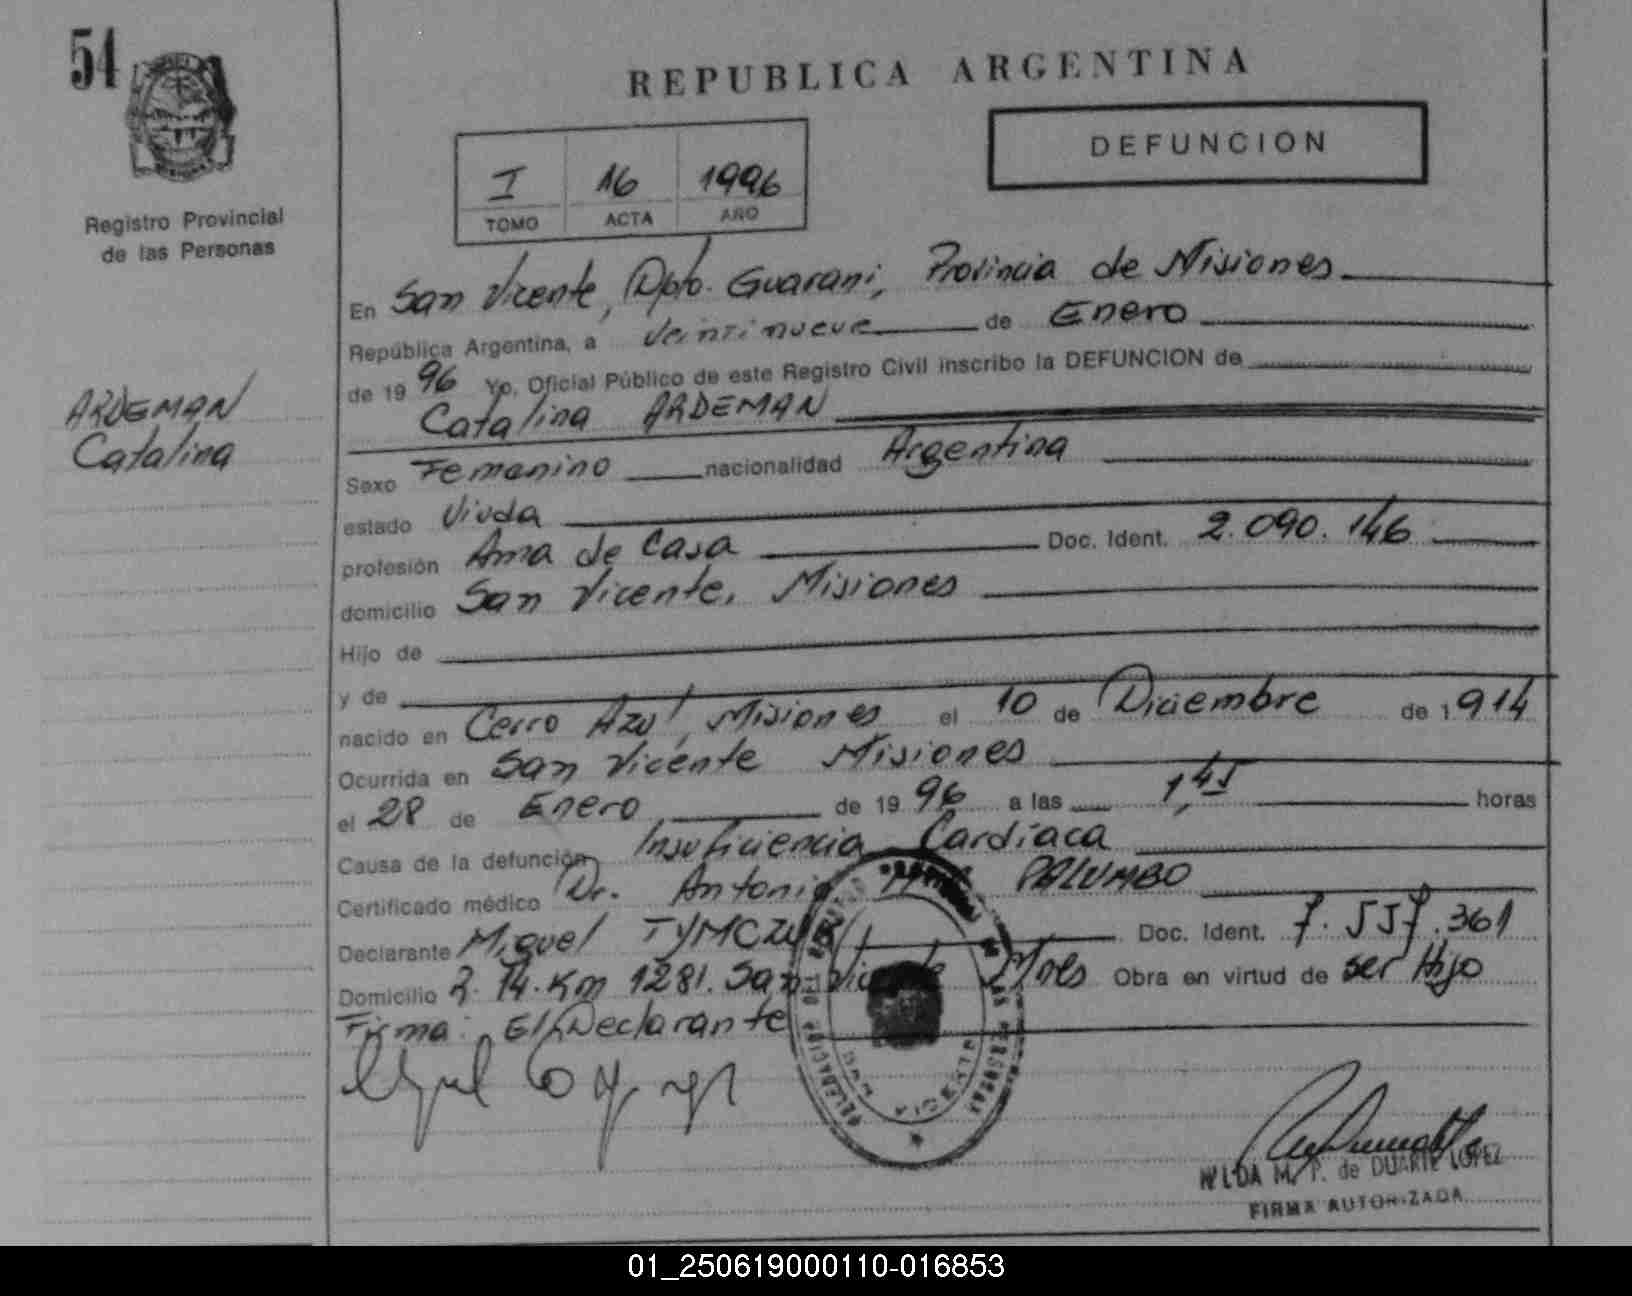 54
REPUBLICA ARGENTINA
DEFUNCION
I 16 1996
TOMO ACTA AÑO
Registro Provincial
de las Personas
ARDEMAN
Catalina
En San Vicente, Dpto. Guarani, Provincia de Misiones
República Argentina, a veintinueve de Enero
de 1996 Yo, Oficial Público de este Registro Civil inscribo la DEFUNCION de
Catalina ARDEMAN
Sexo Femenino nacionalidad Argentina
estado Viuda
profesión Ama de Casa Doc. Ident. 2.090.146
domicilio San Vicente, Misiones
Hijo de
y de
nacido en Cerro Azul, Misiones el 10 de Diciembre de 1914
Ocurrida en San Vicente Misiones
el 28 de Enero de 1996 a las 1,45 horas
Causa de la defunción Insuficiencia Cardíaca
Certificado médico Dr. Antonio PALUMBO
Declarante Miguel TYMCZUK Doc. Ident. 7.557.361
Domicilio R. 14. Km 1281. San Vicente Mnes Obra en virtud de ser Hijo
Firma: El Declarante
DELEGACION
SAN VICENTE
NILDA M. P. de DUARTE LOPEZ
FIRMA AUTORIZADA
01_250619000110-016853